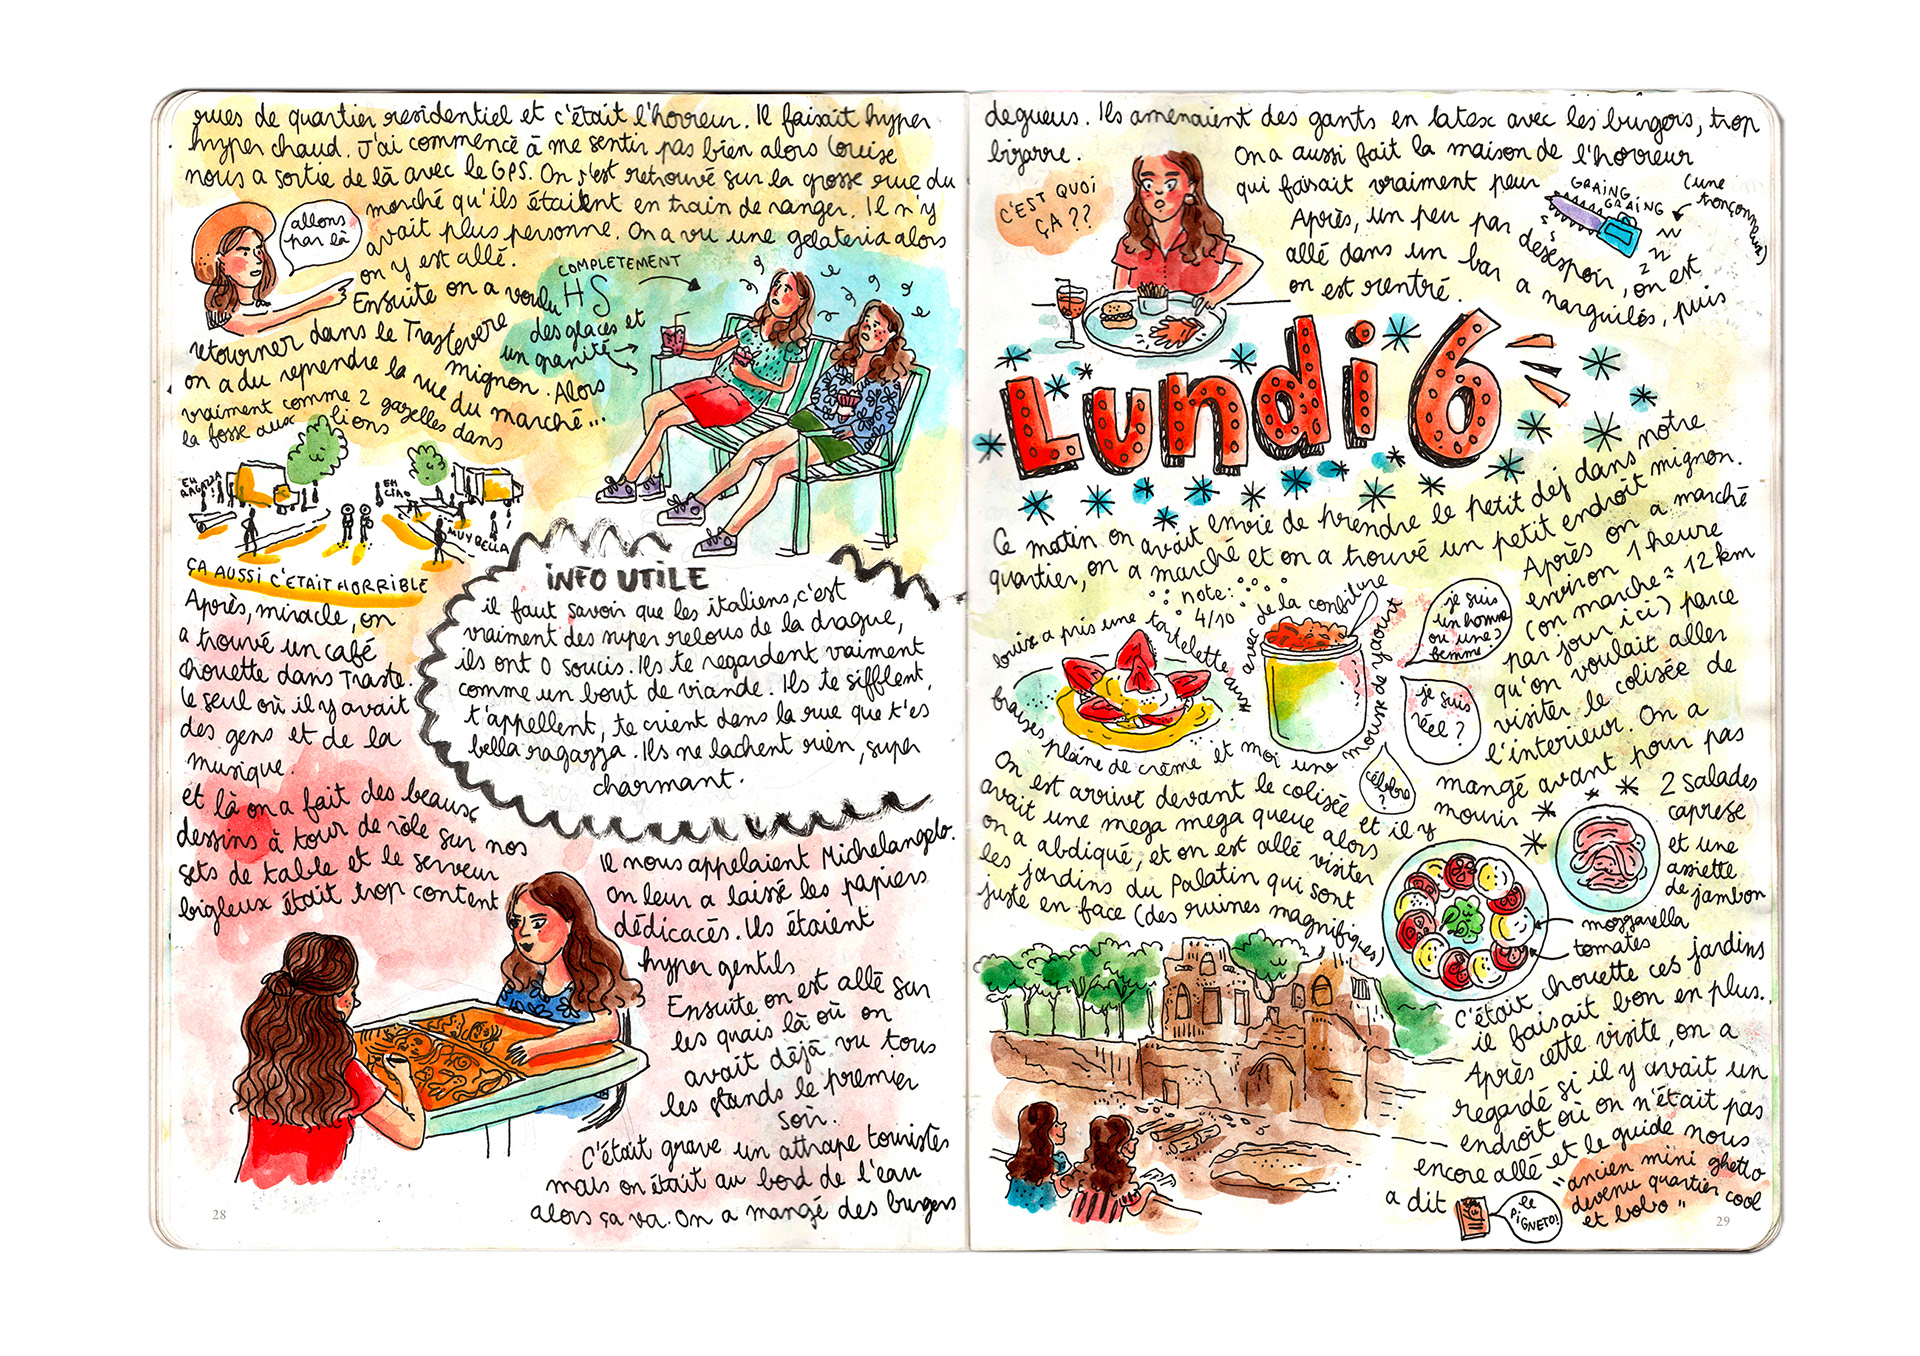 rues de quartier residentiel et c'était l'horreur. Il faisait hyper
hyper chaud. J'ai commencé à me sentir pas bien alors Louise
nous a sortie de là avec le GPS. On s'est retrouvé sur la grosse rue du
marché qu'ils étaient en train de ranger. Il n'y
avait plus personne. On a vu une gelateria alors
on y est allé.
allons
par là
Ensuite on a voulu
retourner dans le Trastevere
mignon. Alors
on a du reprendre la rue du marché...
vraiment comme 2 gazelles dans
la fosse aux lions
COMPLETEMENT
HS
des glaces et
un granité
EH
RAGAZZA!
EH
CIAO
MUY BELLA
ÇA AUSSI C'ETAIT HORRIBLE
Après, miracle, on
a trouvé un café
chouette dans Traste.
le seul où il y avait
des gens et de la
musique.
et là on a fait des beaux
dessins à tour de rôle sur nos
sets de table et le serveur
bigleux était trop content
INFO UTILE
il faut savoir que les italiens, c'est
vraiment des super relous de la drague,
ils ont 0 soucis. Ils te regardent vraiment
comme un bout de viande. Ils te sifflent,
t'appellent, te crient dans la rue que t'es
bella ragazza. Ils ne lachent rien, super
charmant.
Il nous appelaient Michelangelo.
On leur a laissé les papiers
dédicacés. Ils étaient
hyper gentils
Ensuite on est allé sur
les quais là où on
avait déjà vu tous
les stands le premier
soir.
C'était grave un attrape touristes
mais on était au bord de l'eau
alors ça va. On a mangé des burgers
28
degueus. Ils amenaient des gants en latex avec les burgers, trop
bizarre.
C'EST QUOI
ÇA ??
On a aussi fait la maison de l'horreur
qui faisait vraiment peur
GRAING
GRAING
(une
tronçonneuse)
Après, un peu par desespoir, on est
allé dans un bar a narguilés, puis
on est rentré.
Lundi 6
Ce matin on avait envie de prendre le petit dej dans notre
quartier, on a marché et on a trouvé un petit endroit mignon.
note:
4/10
Louise a pris une tartelette aux
fraises pleine de crème et moi une mousse de yaourt
avec de la confiture
je suis
un homme
ou une
femme?
je suis
réel ?
célèbre
?
Après on a marché
environ 1 heure
(on marche ≈ 12 km
par jour ici) parce
qu'on voulait aller
visiter le colisée de
l'interieur. On a
mangé avant pour pas
mourir
2 salades
caprese
et une
assiette
de jambon
mozzarella
tomates
On est arrivé devant le colisée et il y
avait une mega mega queue alors
on a abdiqué, et on est allé visiter
les jardins du Palatin qui sont
juste en face (des ruines magnifiques)
C'était chouette ces jardins
il faisait bon en plus.
Après cette visite, on a
regardé si il y avait un
endroit où on n'était pas
encore allé et le guide nous
a dit
le
PIGNETO!
"ancien mini ghetto
devenu quartier cool
et bobo"
29